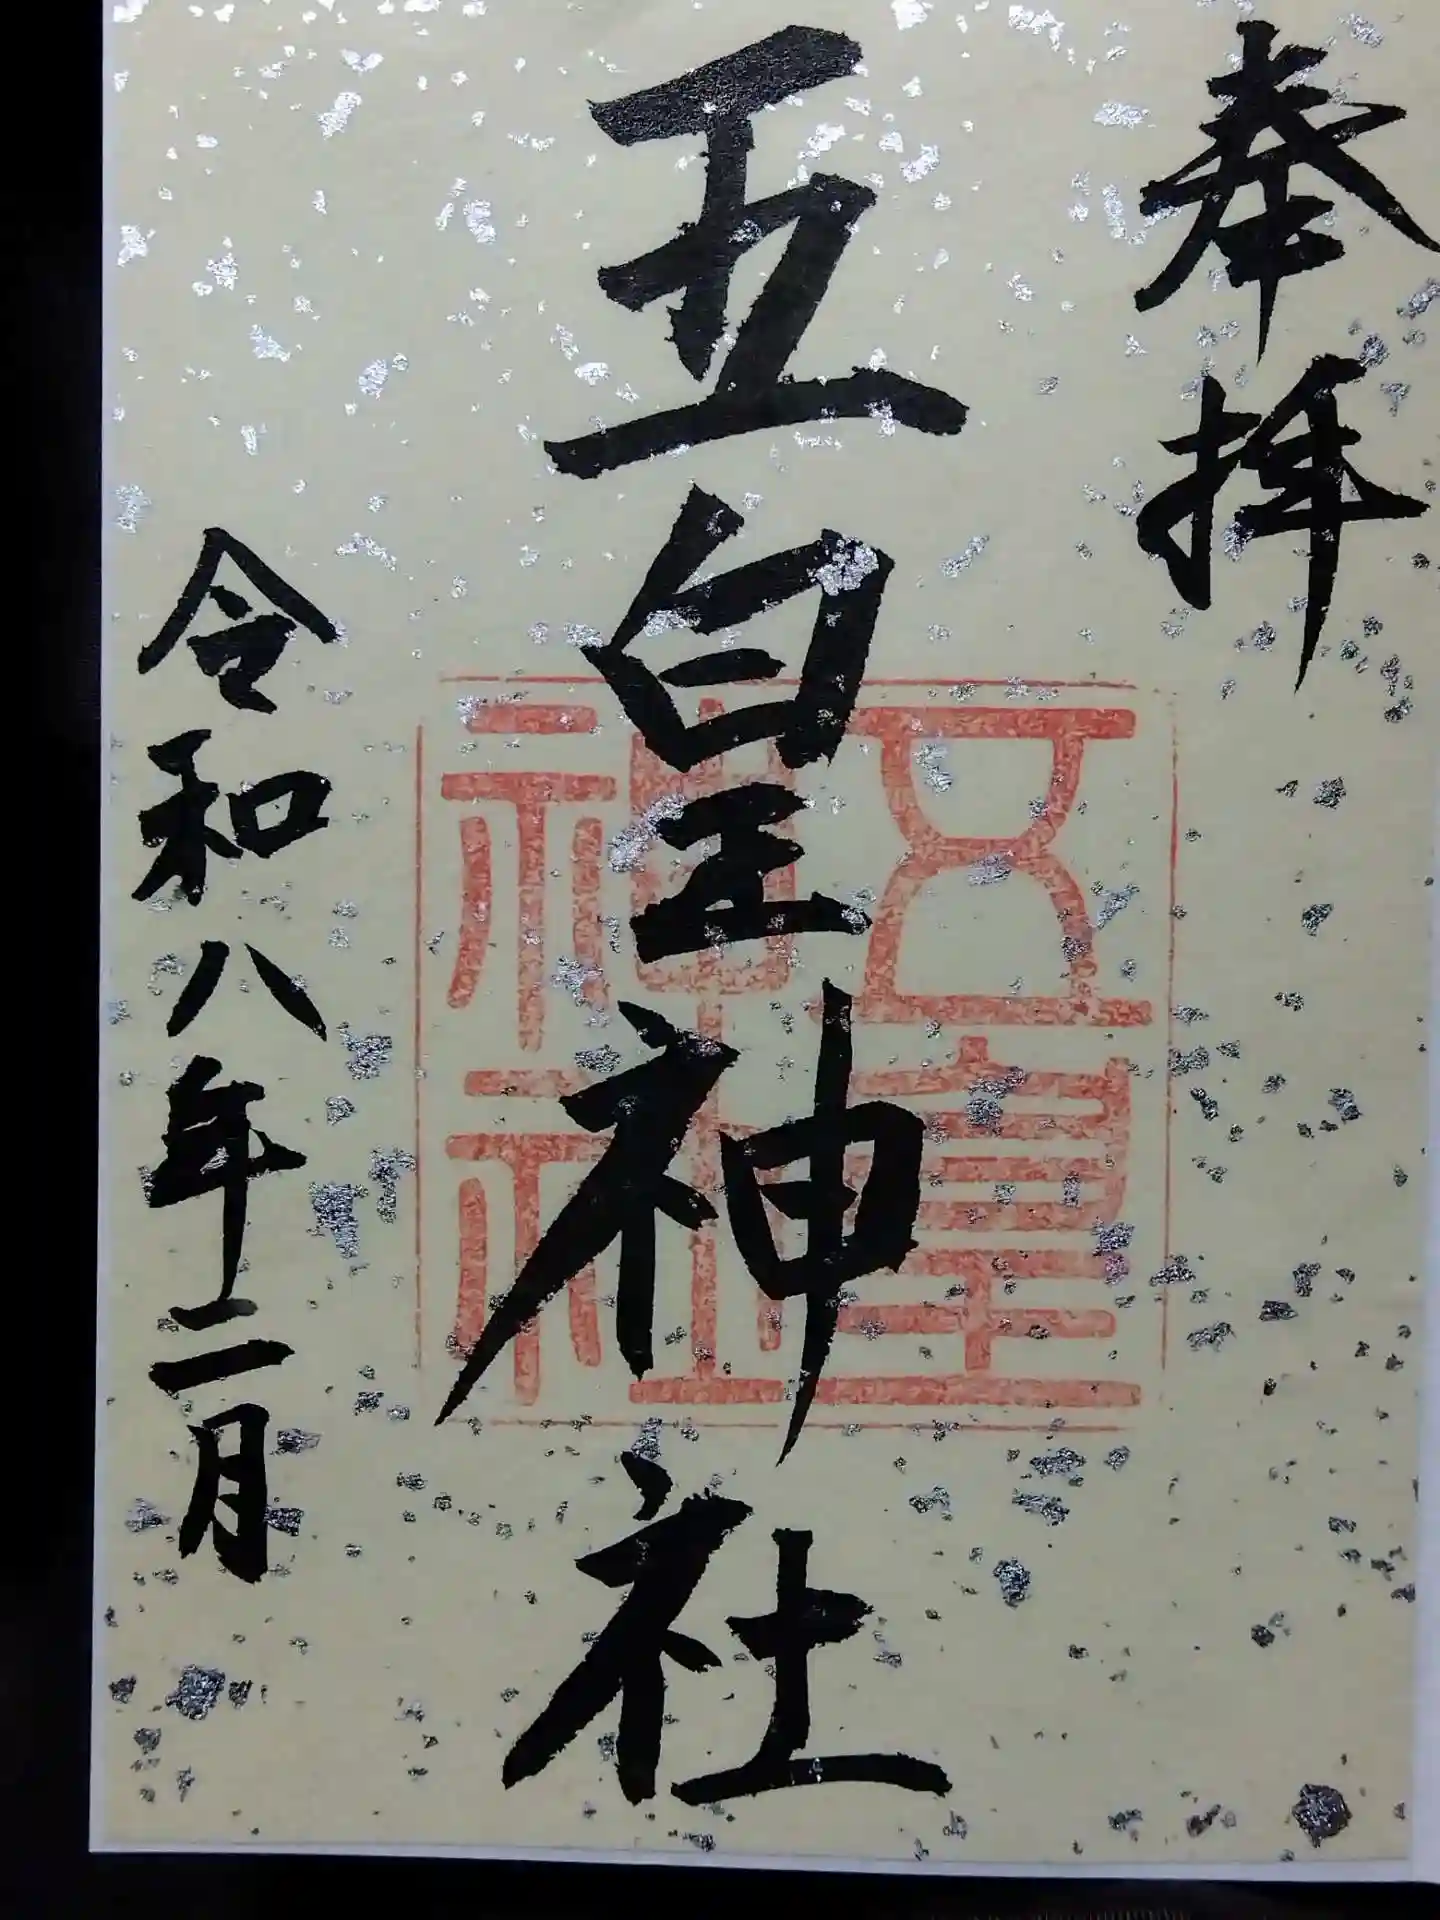 奉拝
五皇神社
五皇
神社
令和八年二月